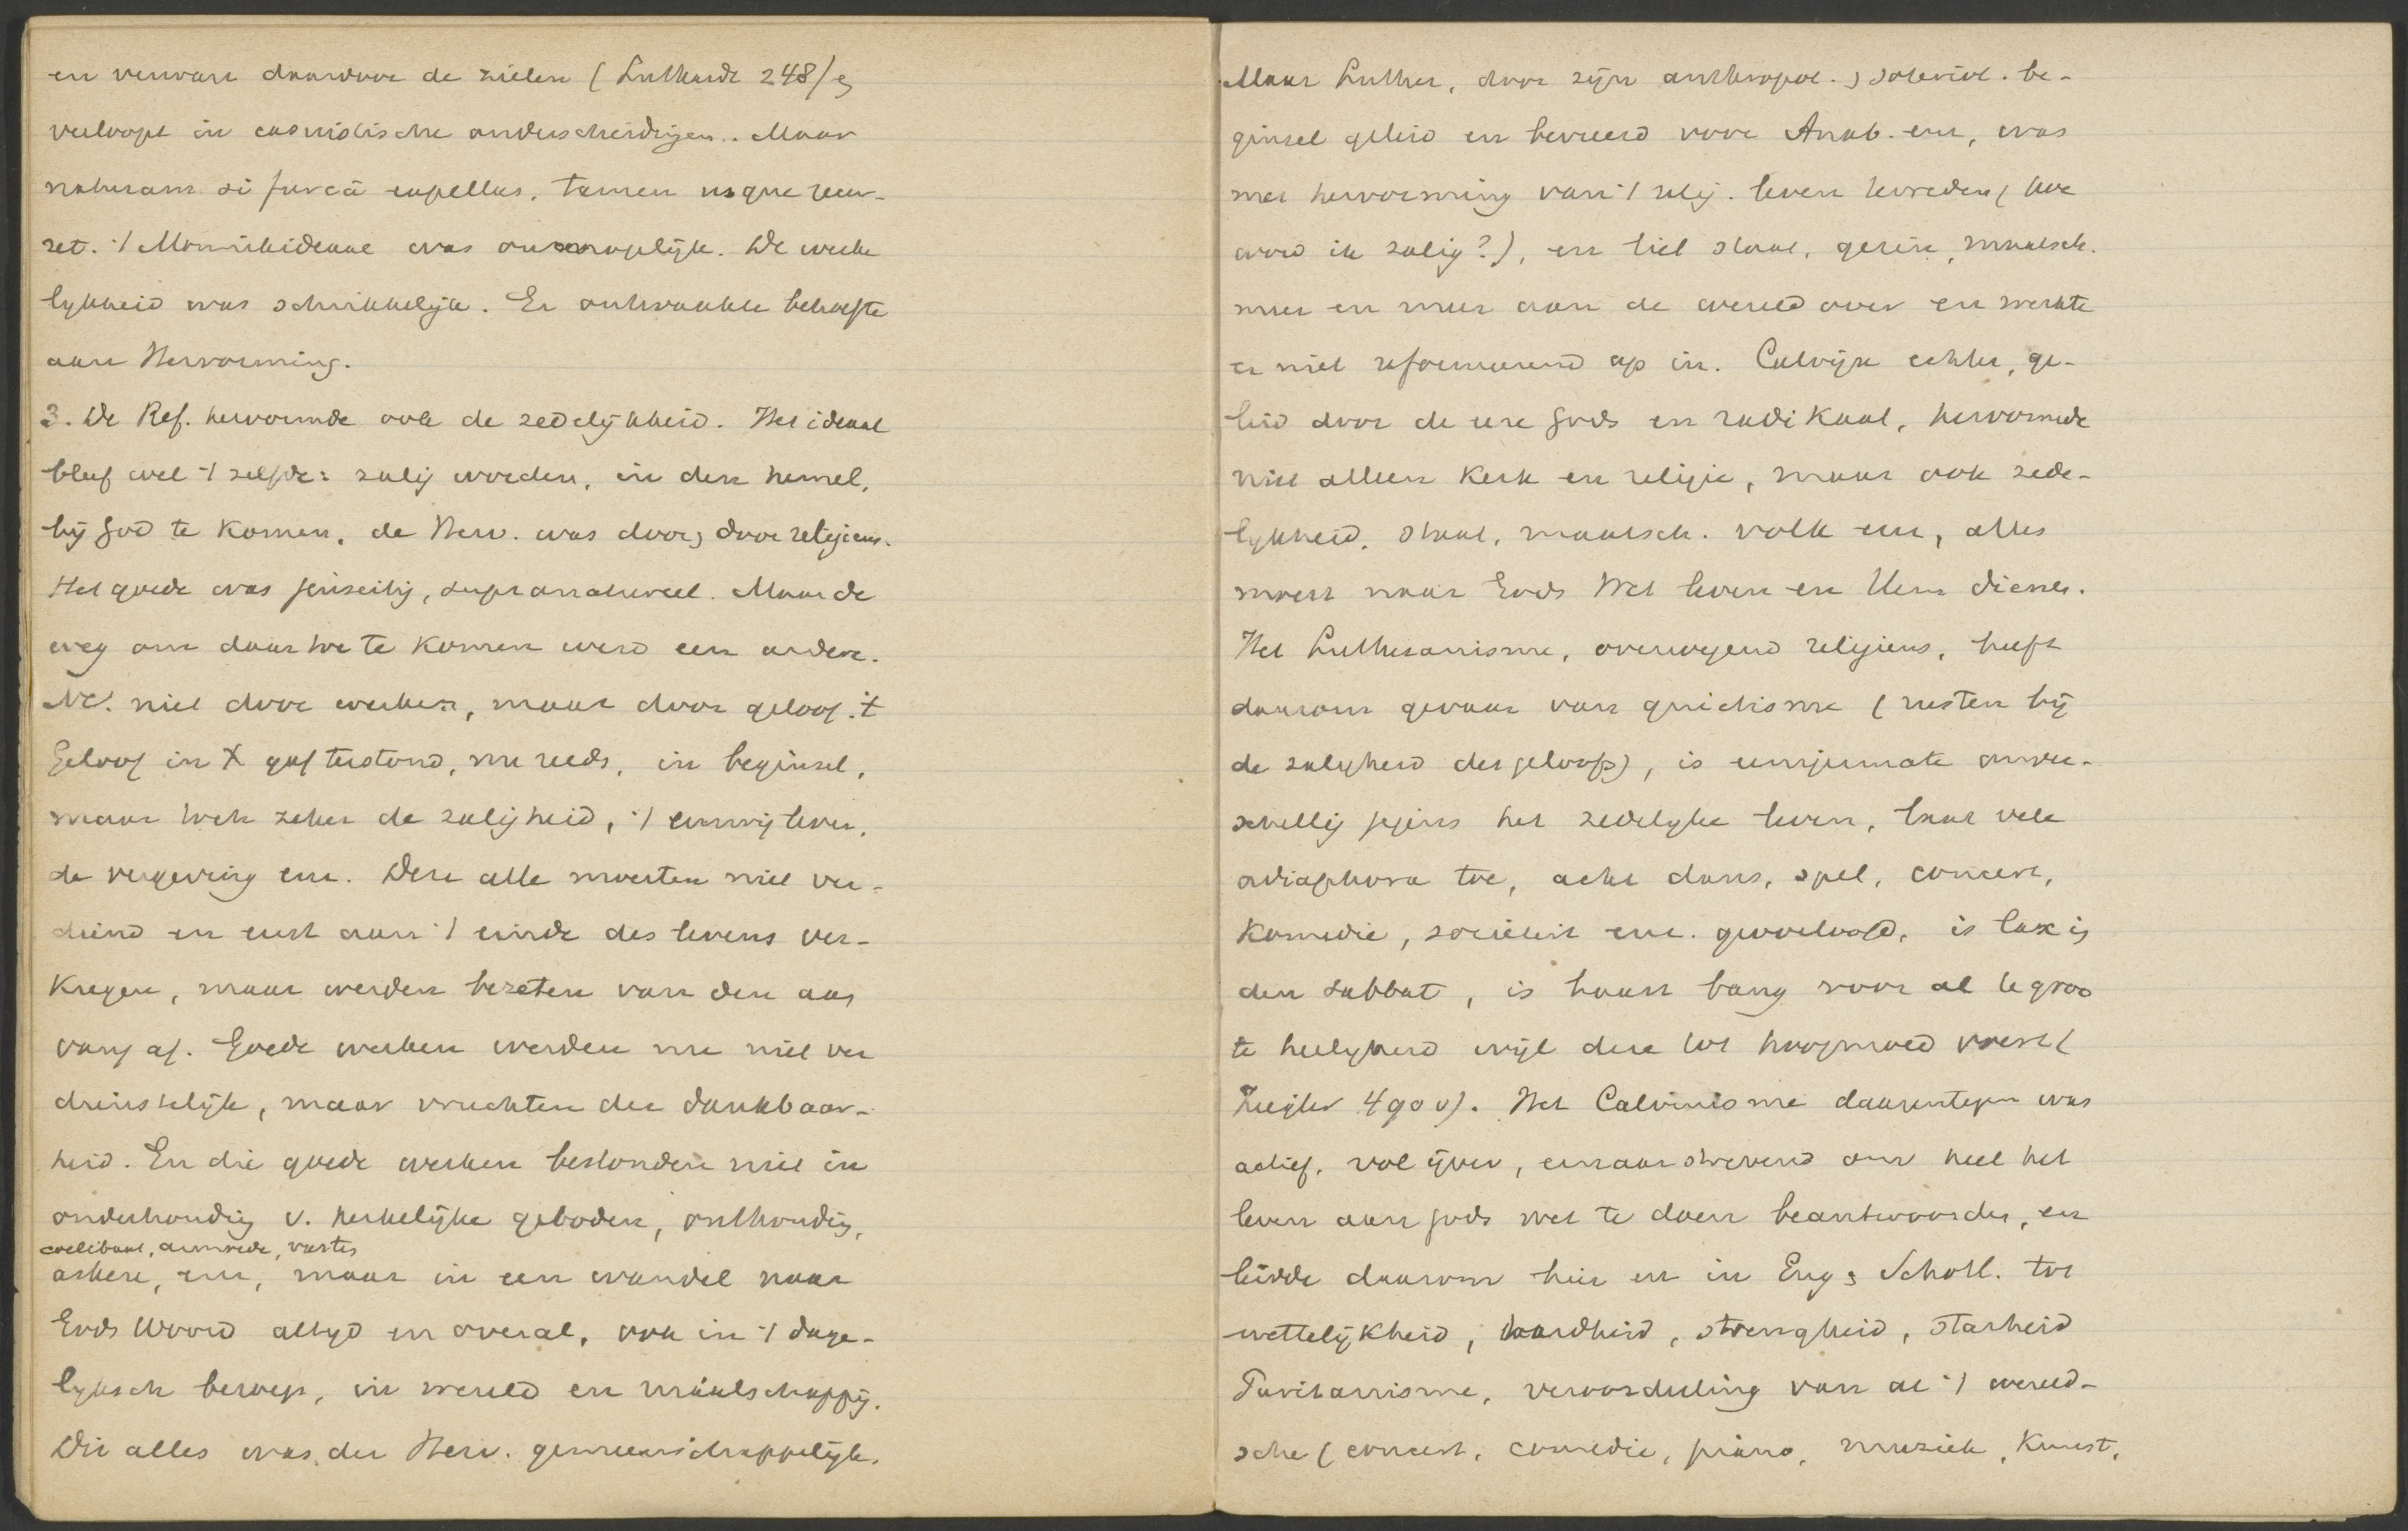 en verwart daardoor de zielen (Luthardt 248) en
verloopt in casuistische onderscheidingen.. Maar
naturam si furcâ expellas, tamen usque recur-
ret. 't Monnikideaal was onmogelijk. De werke
lijkheid was schrikkelijk. Er ontwaakte behoefte
aan Hervorming.
3. De Ref. hervormde ook de zedelijkheid. Het ideaal
bleef wel 't zelfde: zalig worden, in den hemel,
bij God te komen, de Herv. was door en door religieus.
Het goede was jenseitig, supranatureel. Maar de
weg om daar toe te komen werd een andere.
Nl. niet door werken, maar door geloof. 't
Geloof in X gaf terstond, nu reeds, in beginsel,
maar toch zeker de zaligheid, 't eeuwig leven,
de vergeving enz. Deze alle moesten niet ver-
diend en eerst aan 't einde des levens ver-
kregen, maar werden bezeten van den aan
vang af. Goede werken werden nu niet ver
dienstelijk, maar vruchten der dankbaar-
heid. En die goede werken bestonden niet in
onderhouding v. kerkelijke geboden, onthouding,
coelibaat, armoede, vasten
askese, enz, maar in een wandel naar
Gods Woord altijd en overal, ook in 't dage-
lijksch beroep, in wereld en maatschappij.
Dit alles was der Herv. gemeenschappelijk.
Maar Luther, door zijn anthropol. en soteriol. be-
ginsel geleid en bevreesd voor Anab. enz, was
met hervorming van 't relig. leven tevreden (hoe
word ik zalig?), en liet staat, gezin, maatsch.
meer en meer aan de wereld over en werkte
er niet reformeerend op in. Calvijn echter, ge-
leid door de eere Gods en radikaal, hervormde
niet alleen kerk en religie, maar ook zede-
lijkheid, staat, maatsch. volk enz, alles
moest naar Gods Wet leven en Hem dienen.
Het Lutheranisme, overwegend religieus, heeft
daarom gevaar van quietisme (rusten bij
de zaligheid des geloofs), is eenigermate onver-
schillig jegens het zedelijke leven, laat vele
adiaphora toe, acht dans, spel, concert,
komedie, societeit enz. geoorloofd, is lax in
den sabbat, is haast bang voor al te groo
te heiligheid wijl deze tot hoogmoed voert (
Ziegler 490 v). Het Calvinisme daarentegen was
actief, vol ijver, ernaar strevend om heel het
leven aan Gods wet te doen beantwoorden, en
leidde daarom hier en in Eng en Schotl. tot
wettelijkheid, hardheid, strengheid, starheid
Puritanisme, veroordeeling van al 't wereld-
sche (concert, comedie, piano, muziek, kunst,